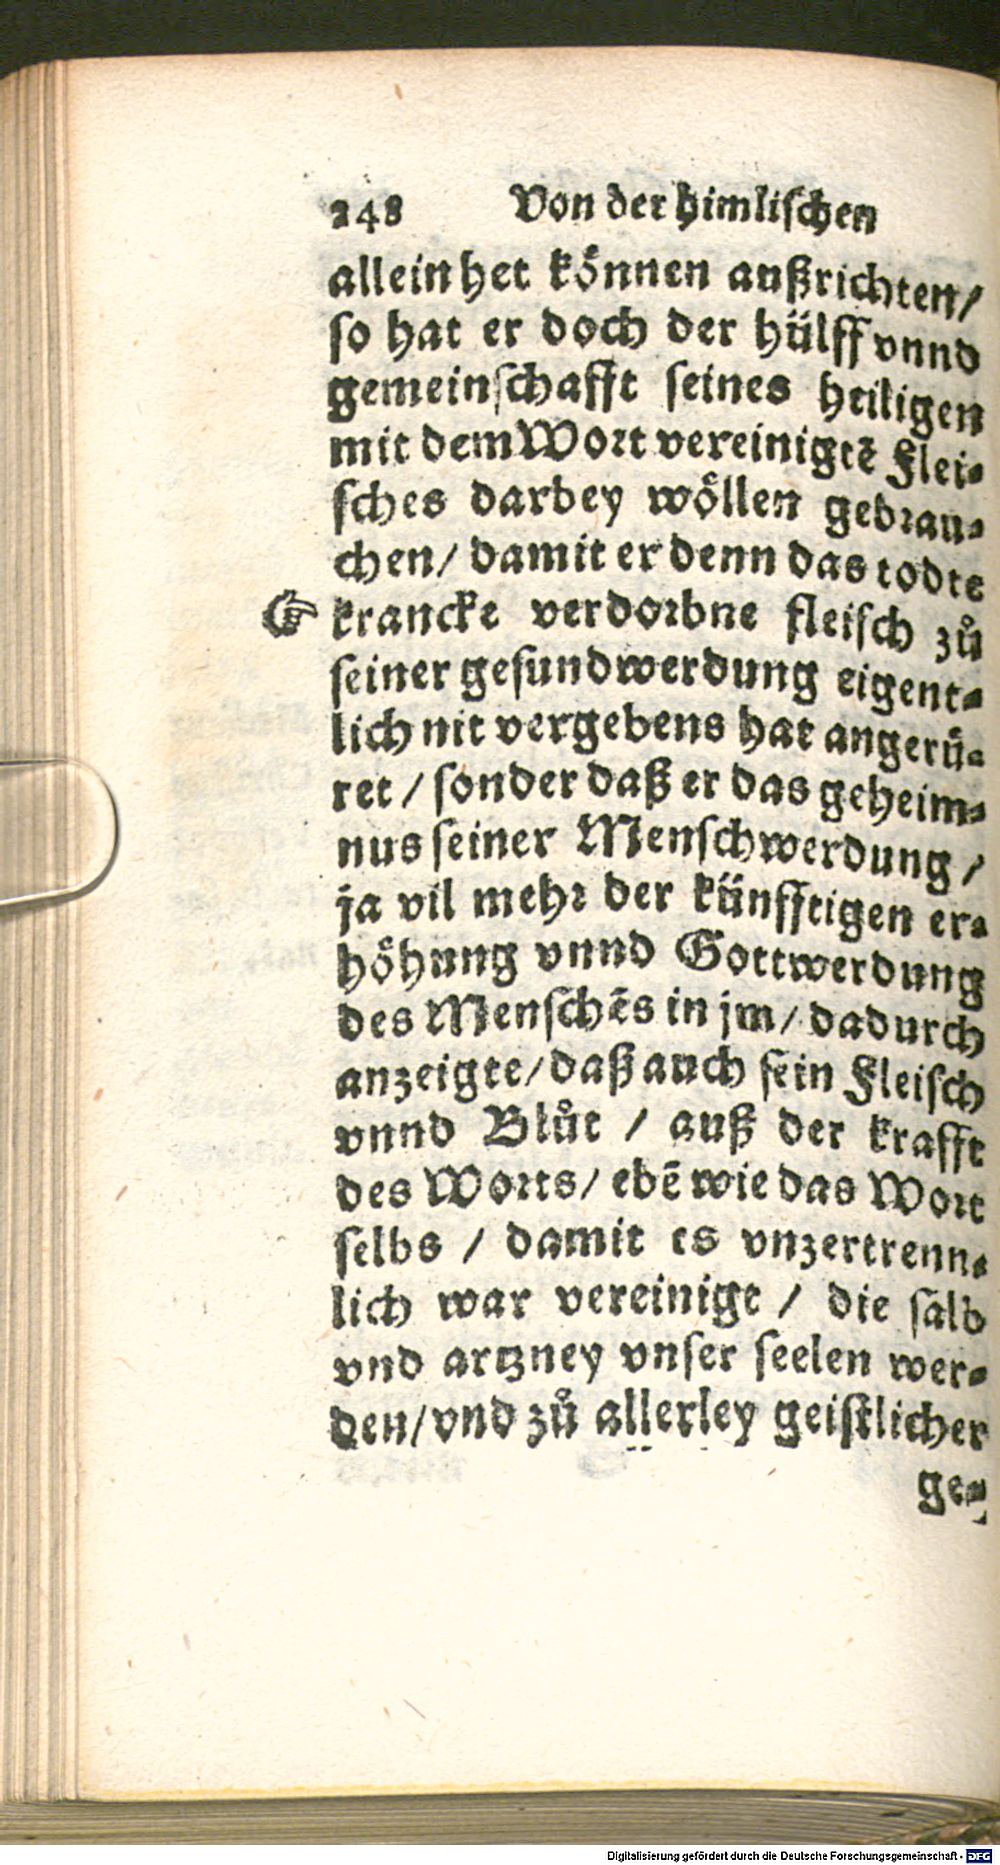 248 Von der himlischen
allein het koͤnnen außrichten/
so hat er doch der huͤlff vnnd
gemeinschafft seines heiligen
mit dem Wort vereinigtē Flei-
sches darbey woͤllen gebrau-
chen/ damit er denn das todte
☞ krancke verdorbne fleisch zuͦ
seiner gesundwerdung eigent-
lich nit vergebens hat angeruͤ-
ret / sonder daß er das geheim-
nus seiner Menschwerdung /
ja vil mehr der kuͤnfftigen er-
hoͤhung vnnd Gottwerdung
des Menschēs in jm/ dadurch
anzeigte/ daß auch sein Fleisch
vnnd Bluͦt / auß der krafft
des Worts/ ebē wie das Wort
selbs / damit es vnzertrenn-
lich war vereinigt / die salb
vnd artzney vnser seelen wer-
den/ vnd zuͦ allerley geistlicher
ge-
Digitalisierung gefördert durch die Deutsche Forschungsgemeinschaft - DFG